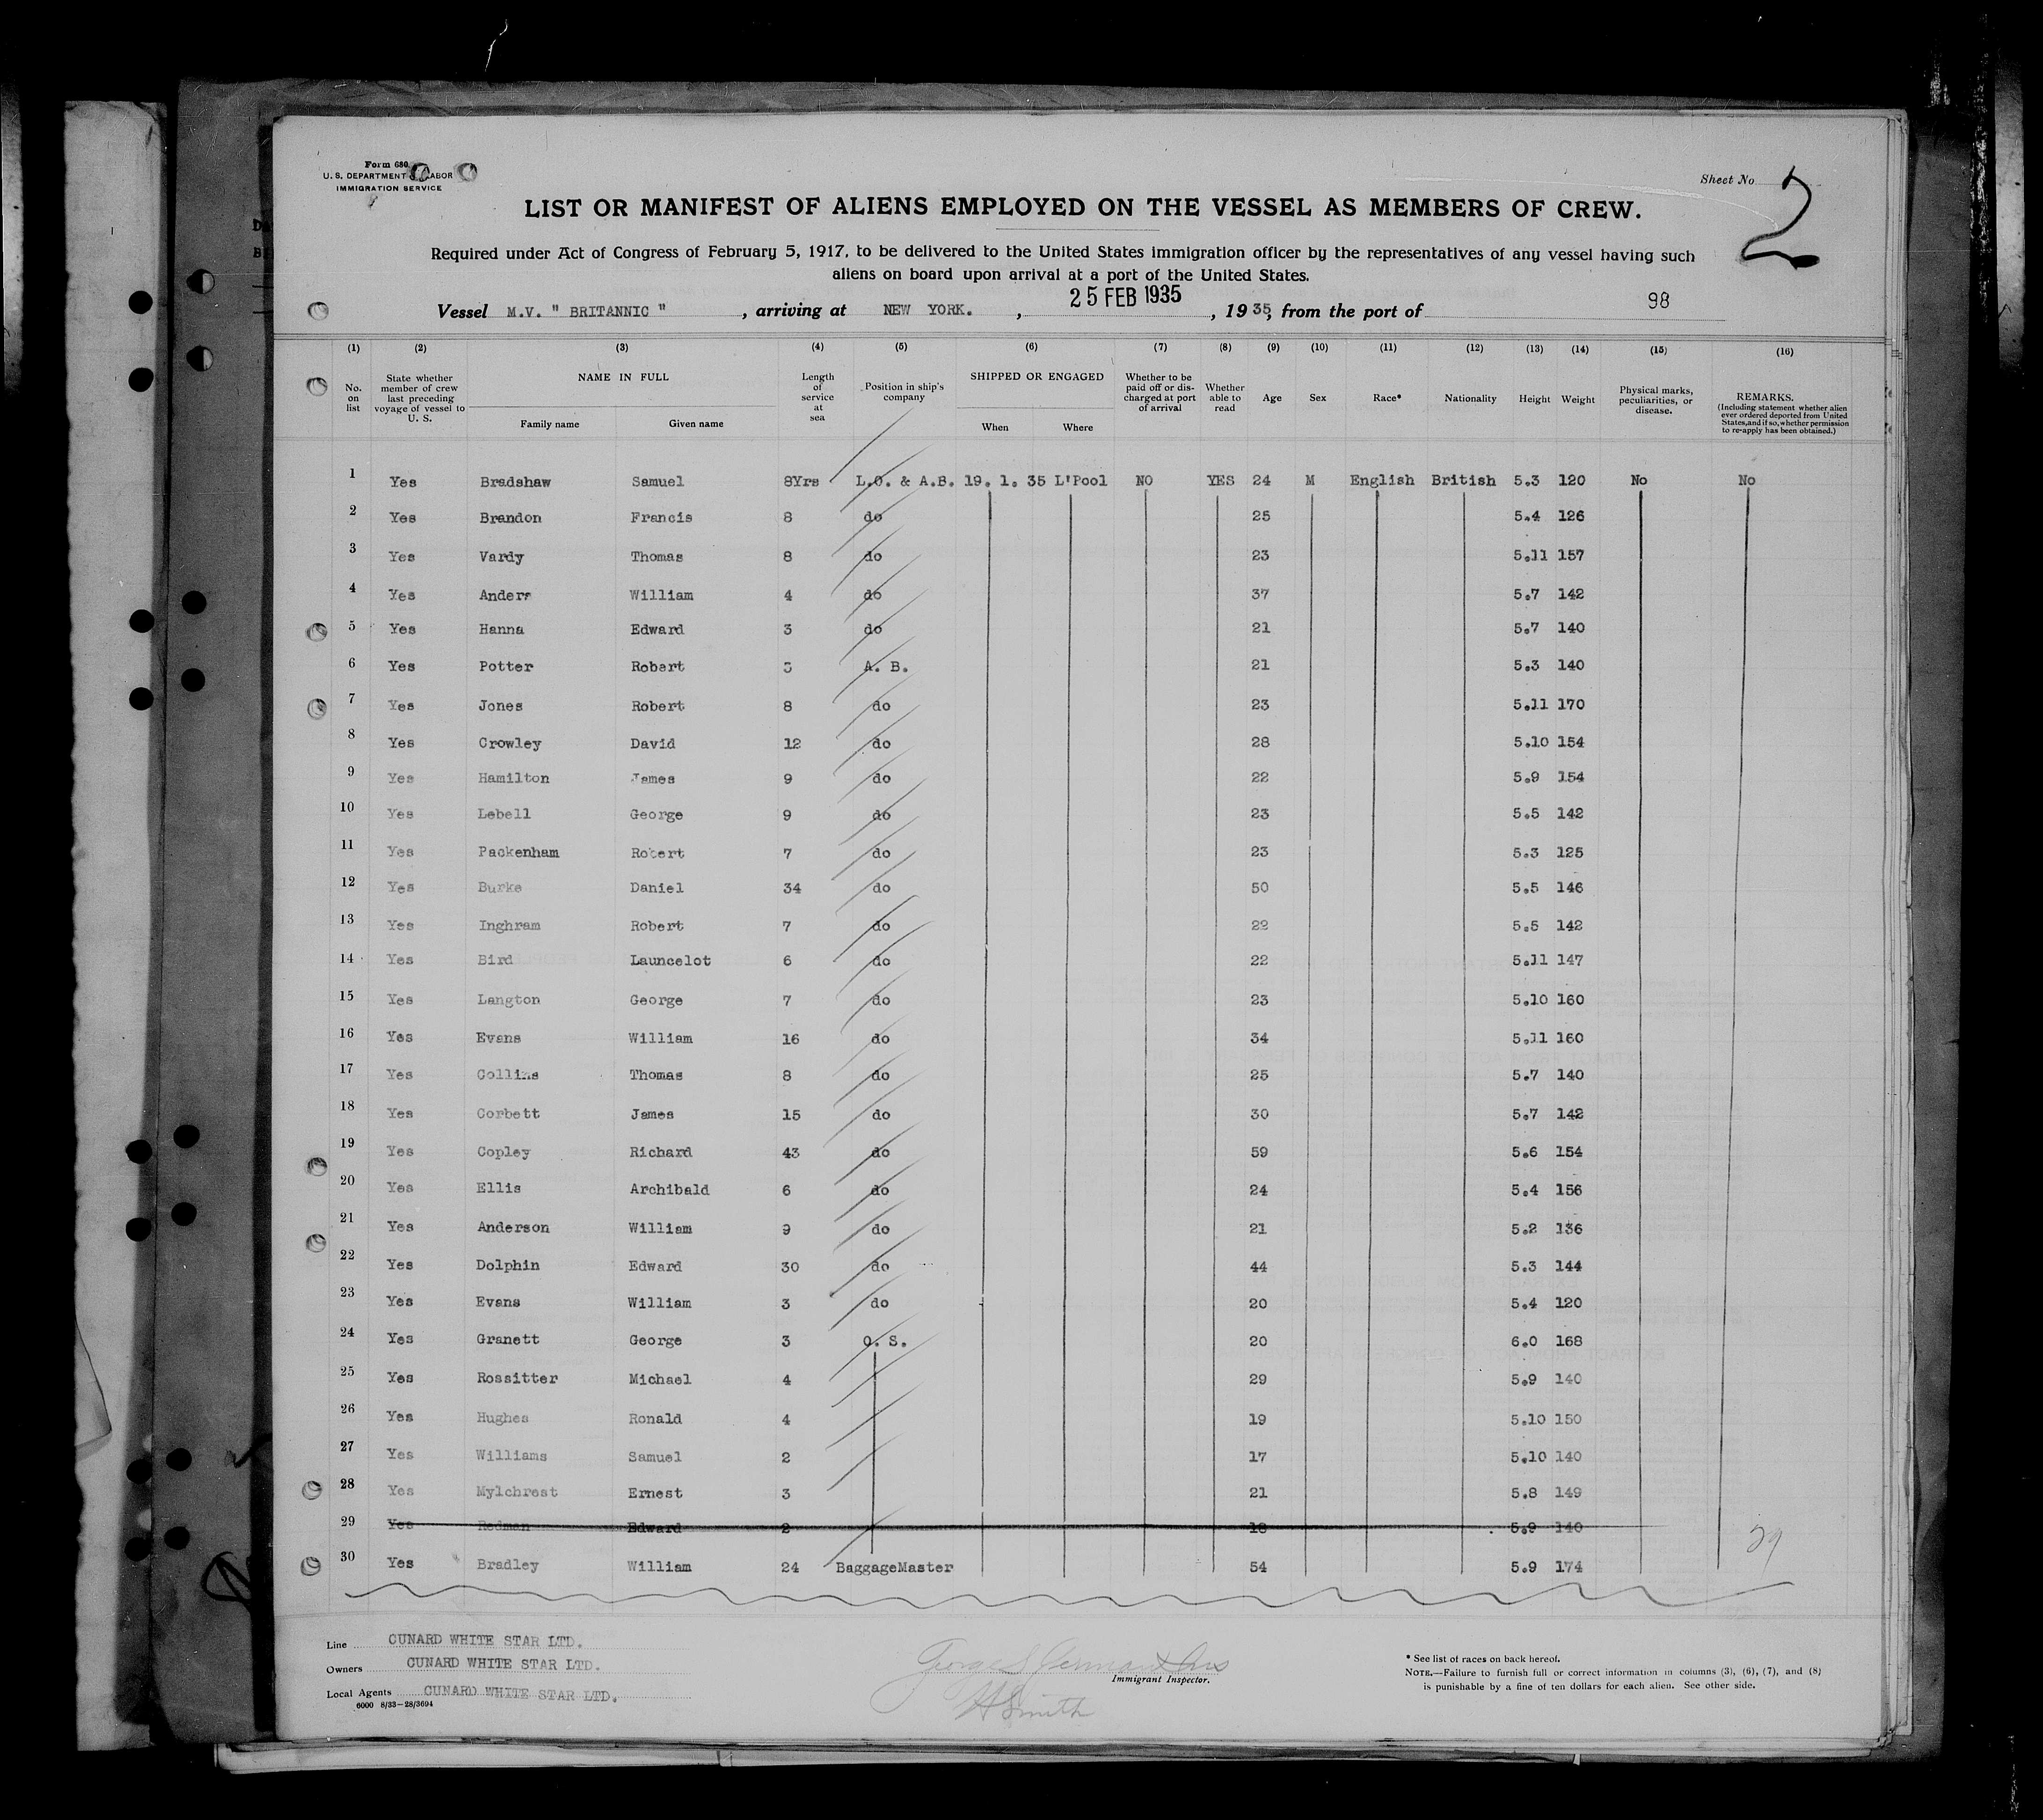 Form 680
U. S. DEPARTMENT LABOR
IMMIGRATION SERVICE
Sheet No 2
LIST OR MANIFEST OF ALIENS EMPLOYED ON THE VESSEL AS MEMBERS OF CREW.
Required under Act of Congress of February 5, 1917, to be delivered to the United States immigration officer by the representatives of any vessel having such
aliens on board upon arrival at a port of the United States.
Vessel M.V. " BRITANNIC " , arriving at NEW YORK. , 25 FEB 1935 , 1935, from the port of 98
(1) (2) (3) (4) (5) (6) (7) (8) (9) (10) (11) (12) (13) (14) (15) (16)
No. on list
State whether member of crew last preceding voyage of vessel to U. S.
NAME IN FULL
Family name
Given name
Length of service at sea
Position in ship's company
SHIPPED OR ENGAGED
When
Where
Whether to be paid off or discharged at port of arrival
Whether able to read
Age
Sex
Race*
Nationality
Height
Weight
Physical marks, peculiarities, or disease.
REMARKS.
(Including statement whether alien ever ordered deported from United States, and if so, whether permission to re-apply has been obtained.)
1 Yes Bradshaw Samuel 8Yrs L.O. & A.B. 19. 1. 35 L'Pool NO YES 24 M English British 5.3 120 No No
2 Yes Brandon Francis 8 do 25 5.4 126
3 Yes Vardy Thomas 8 do 23 5.11 157
4 Yes Anders William 4 do 37 5.7 142
5 Yes Hanna Edward 3 do 21 5.7 140
6 Yes Potter Robert 3 A. B. 21 5.3 140
7 Yes Jones Robert 8 do 23 5.11 170
8 Yes Crowley David 12 do 28 5.10 154
9 Yes Hamilton James 9 do 22 5.9 154
10 Yes Lebell George 9 do 23 5.5 142
11 Yes Packenham Robert 7 do 23 5.3 125
12 Yes Burke Daniel 34 do 50 5.5 146
13 Yes Inghram Robert 7 do 22 5.5 142
14 Yes Bird Launcelot 6 do 22 5.11 147
15 Yes Langton George 7 do 23 5.10 160
16 Yes Evans William 16 do 34 5.11 160
17 Yes Collins Thomas 8 do 25 5.7 140
18 Yes Corbett James 15 do 30 5.7 142
19 Yes Copley Richard 43 do 59 5.6 154
20 Yes Ellis Archibald 6 do 24 5.4 156
21 Yes Anderson William 9 do 21 5.2 136
22 Yes Dolphin Edward 30 do 44 5.3 144
23 Yes Evans William 3 do 20 5.4 120
24 Yes Granett George 3 O. S. 20 6.0 168
25 Yes Rossitter Michael 4 29 5.9 140
26 Yes Hughes Ronald 4 19 5.10 150
27 Yes Williams Samuel 2 17 5.10 140
28 Yes Mylchrest Ernest 3 21 5.8 149
29 Yes Redman Edward 2 18 5.9 140
30 Yes Bradley William 24 BaggageMaster 54 5.9 174
29
Line CUNARD WHITE STAR LTD.
Owners CUNARD WHITE STAR LTD.
Local Agents CUNARD WHITE STAR LTD.
6000 8/33—28/3694
Immigrant Inspector.
H Smith
* See list of races on back hereof.
NOTE.—Failure to furnish full or correct information in columns (3), (6), (7), and (8)
is punishable by a fine of ten dollars for each alien. See other side.